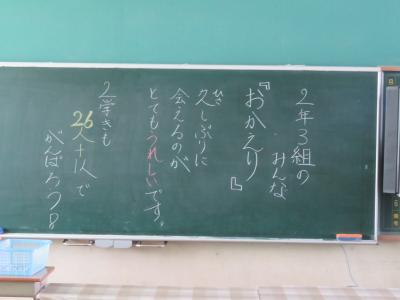 2年3組の
みんな
『おかえり』
久しぶりに
会えるのが
とてもうれしいです。
2学きも
26人+1人で
がんばろう。